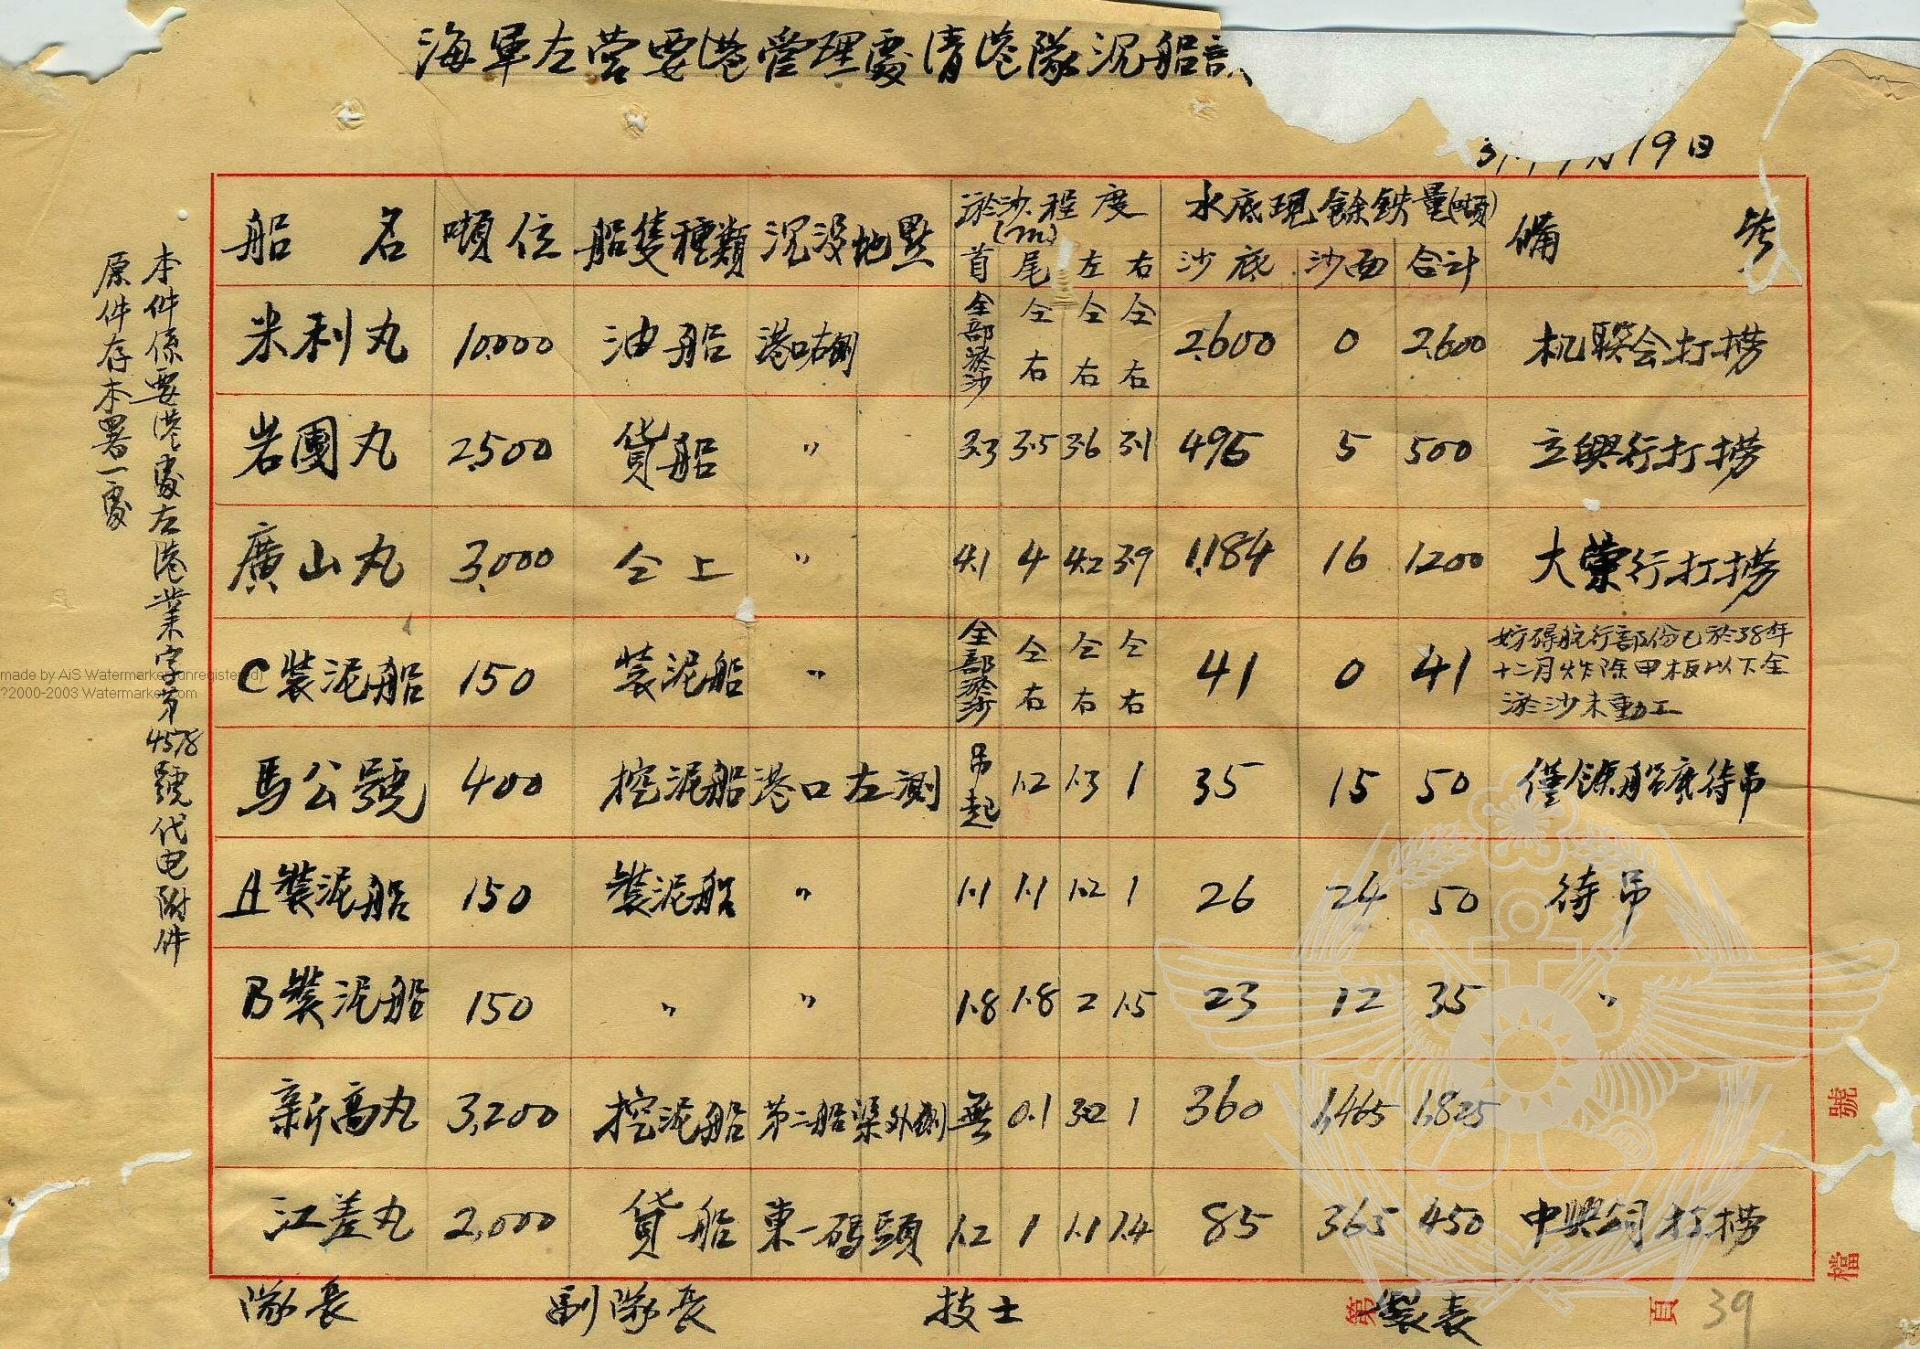 海軍左營要港管理處清港隊沉船
19日
船名 噸位 船隻種類 沉没地點 淤沙程度(m) 水底現餘鉄量(噸) 備考
首 尾 左 右 沙底 沙面 合计
米利丸 10,000 油船 港口右側 全部淤沙 仝右 仝右 仝右 2,600 0 2,600 机联会打撈
岩國丸 2,500 貨船 〃 3.3 3.5 3.6 3.1 495 5 500 立興行打撈
廣山丸 3,000 仝上 〃 4.1 4 4.2 3.9 1,184 16 1200 大榮行打撈
C裝泥船 150 裝泥船 〃 全部淤沙 仝右 仝右 仝右 41 0 41 妨碍航行部份已於38年
十二月炸除甲板以下全
淤沙未動工
馬公號 400 挖泥船 港口左測 吊起 1.2 1.3 1 35 15 50 僅餘船底待吊
A裝泥船 150 裝泥船 〃 1.1 1.1 1.2 1 26 24 50 待吊
B裝泥船 150 〃 〃 1.8 1.8 2 1.5 23 12 35 〃
新高丸 3,200 挖泥船 第二船渠外側 無 0.1 3.2 1 360 1,465 1,825
江差丸 2,000 貨船 東一码頭 1.2 1 1.1 1.4 85 365 450 中興公司打撈
隊長 副隊長 技士 製表
本件係要港處左港業字第4578號代电附件
原件存本署一處
檔號
第 頁 39
made by AiS Watermark (unregistered)
?2000-2003 Watermarker.com